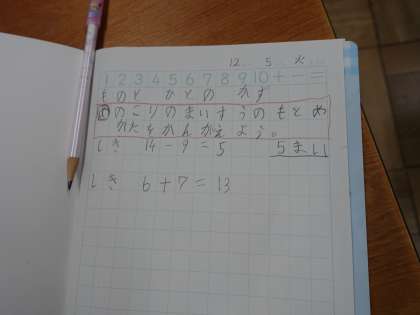 12. 5. 火
1 2 3 4 5 6 7 8 9 10 + − =
ものと かとの かず
めのこりのまいすうのもとめ
かたをかんがえよう。
しき 14−9=5 5まい
しき 6+7=13